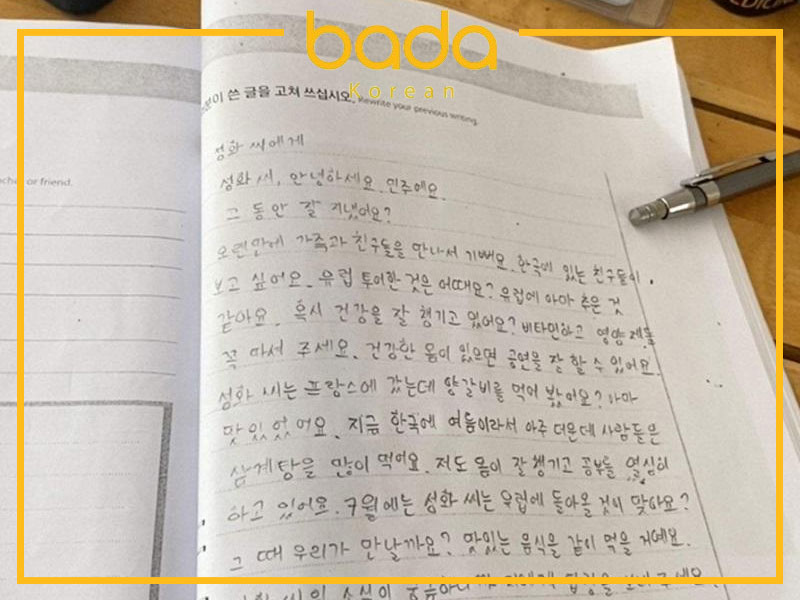 bada
Korean
이 쓴 글을 고쳐 쓰십시오. Rewrite your previous writing.
or friend.
성화 씨에게
성화 씨, 안녕하세요. 민주예요.
그 동안 잘 지냈어요?
오랜만에 가족과 친구들을 만나서 기뻐요. 한국에 있는 친구들이
보고 싶어요. 유럽 투어한 것은 어때요? 유럽에 아마 추운 것
같아요. 혹시 건강을 잘 챙기고 있어요? 비타민하고 영양제를
꼭 따서 주세요. 건강한 몸이 있으면 공연을 잘 할 수 있어요.
성화 씨는 프랑스에 갔는데 양갈비를 먹어 봤어요? 아마
맛있었어요. 지금 한국에 여듬이라서 아주 더운데 사람들은
삼계탕을 많이 먹어요. 저도 몸이 잘 챙기고 공부를 열심히
하고 있어요. 7월에는 성화 씨는 유럽에 돌아올 것이 맞아요?
그 때 우리가 만날까요? 맛있는 음식을 같이 먹을 거예요.
씨의 소식이